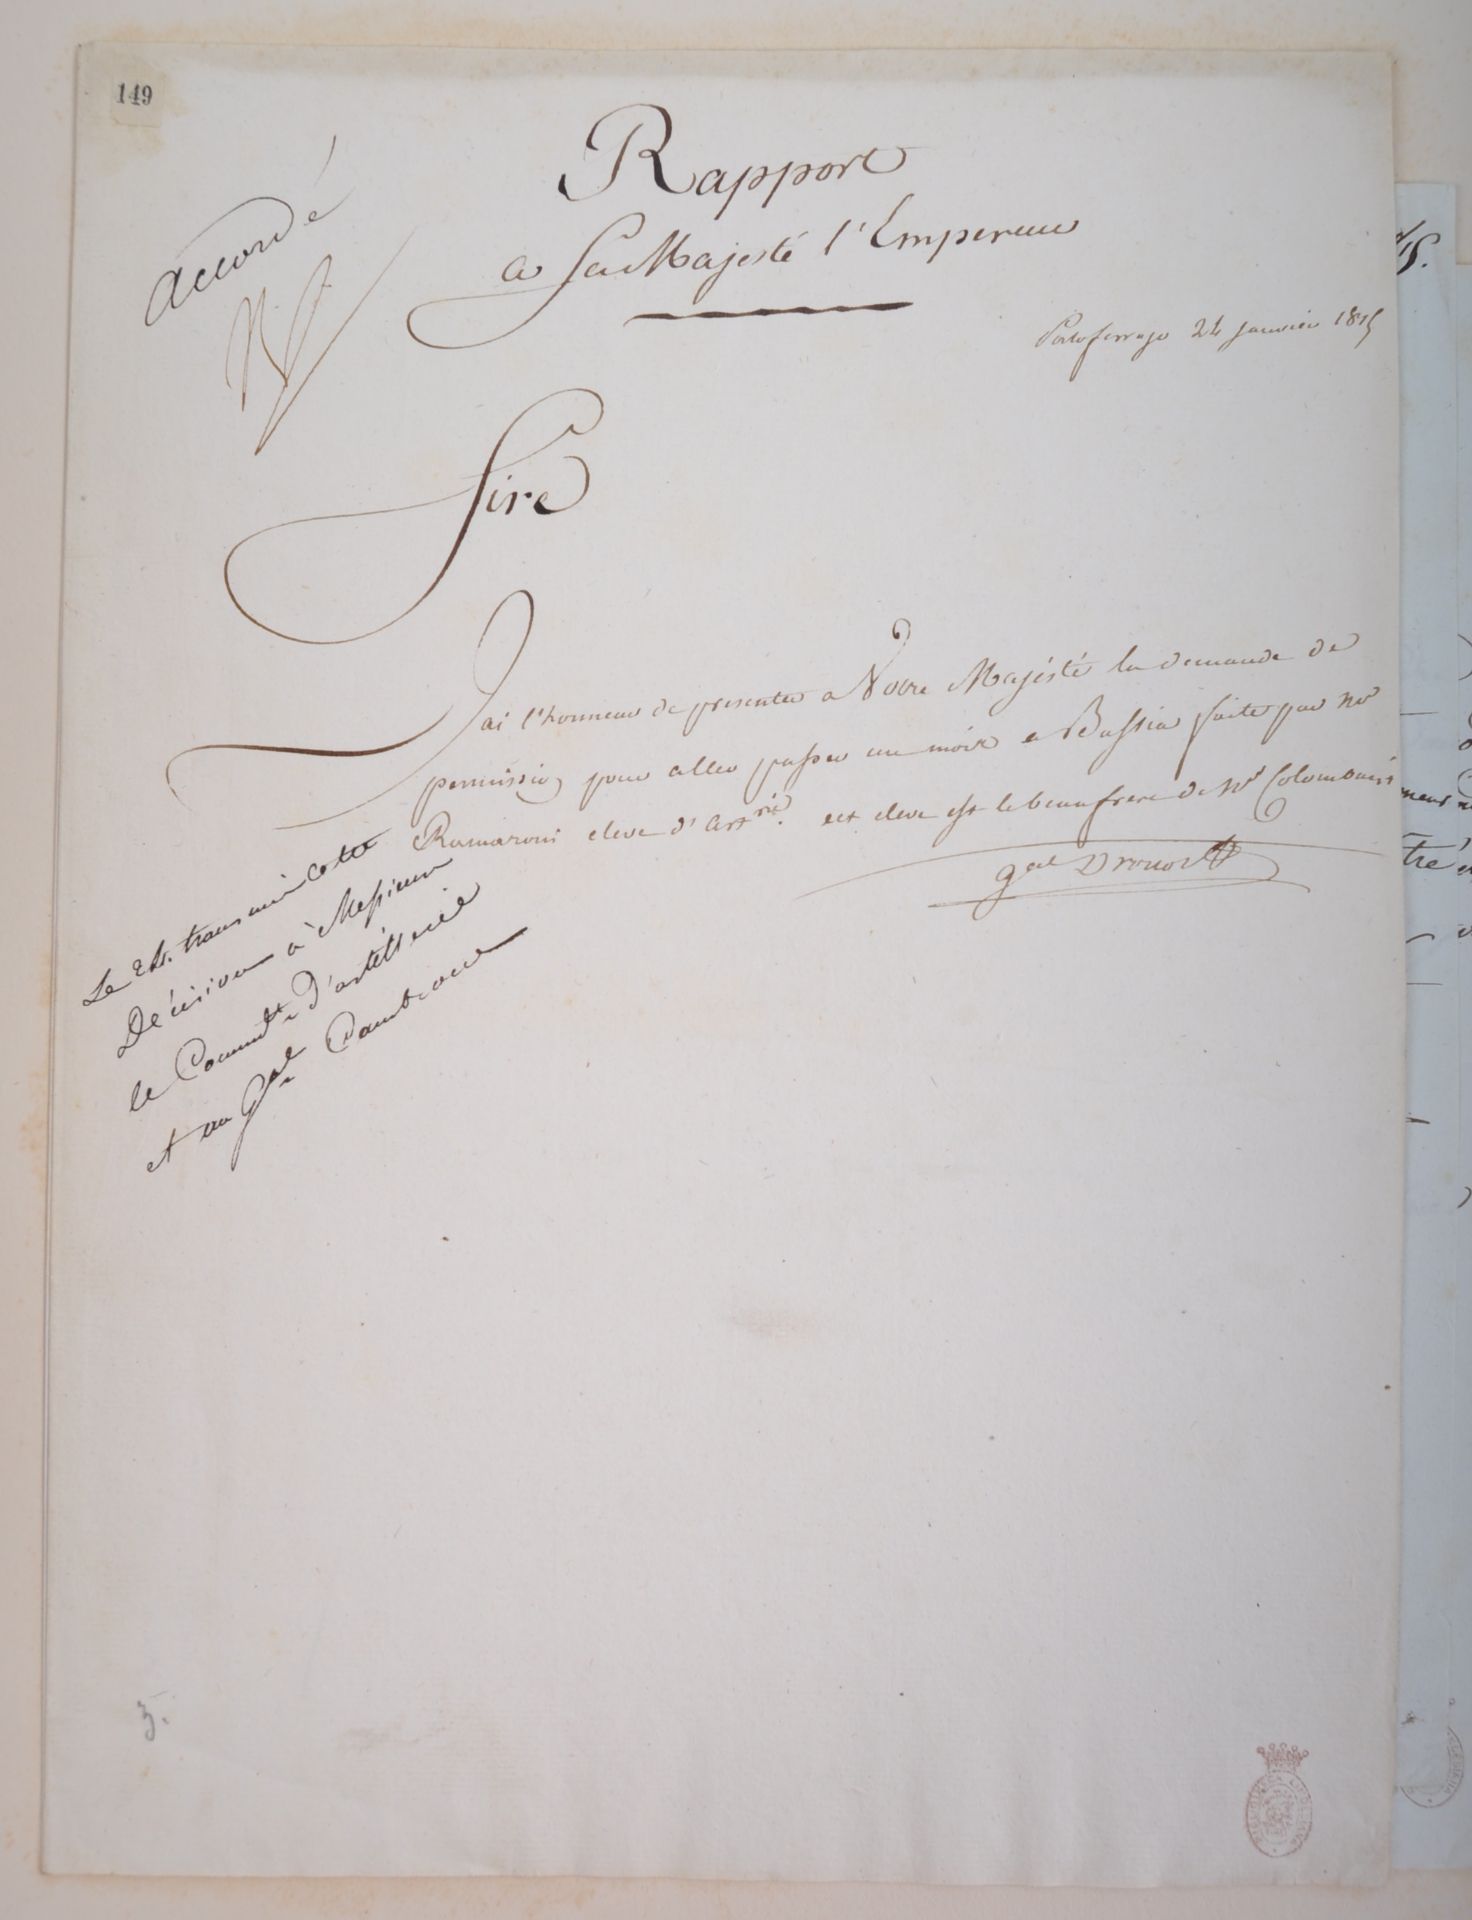 149
accordé
Np
Rapport
a Sa Majesté l'Empereur
Portoferrajo 24 janvier 1815
Sire
J'ai l'honneur de presenter a Votre Majésté la demande de
permission pour aller passer un mois a Bastia faite par Mr
Ramaroni eleve d'artrie. cet eleve est le beaufrere de Mr Colombani
gal Drouot
Le 24. transmis cette
Décision à Messieurs
le Commdt d'artillerie
et au Gal Cambronne
5.